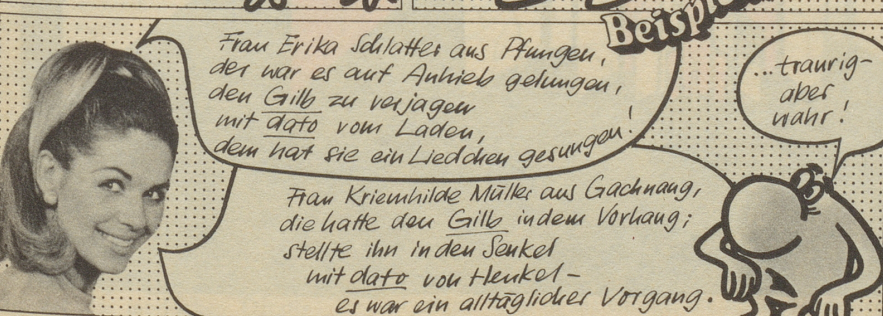 Beispi
Frau Erika Schlatter aus Pfungen,
der war es auf Anhieb gelungen,
den Gilb zu verjagen
mit dato vom Laden,
dem hat sie ein Liedchen gesungen!
...traurig-
aber
wahr!
Frau Kriemhilde Müller aus Gachnang,
die hatte den Gilb in dem Vorhang;
stellte ihn in den Senkel
mit dato von Henkel -
es war ein alltäglicher Vorgang.